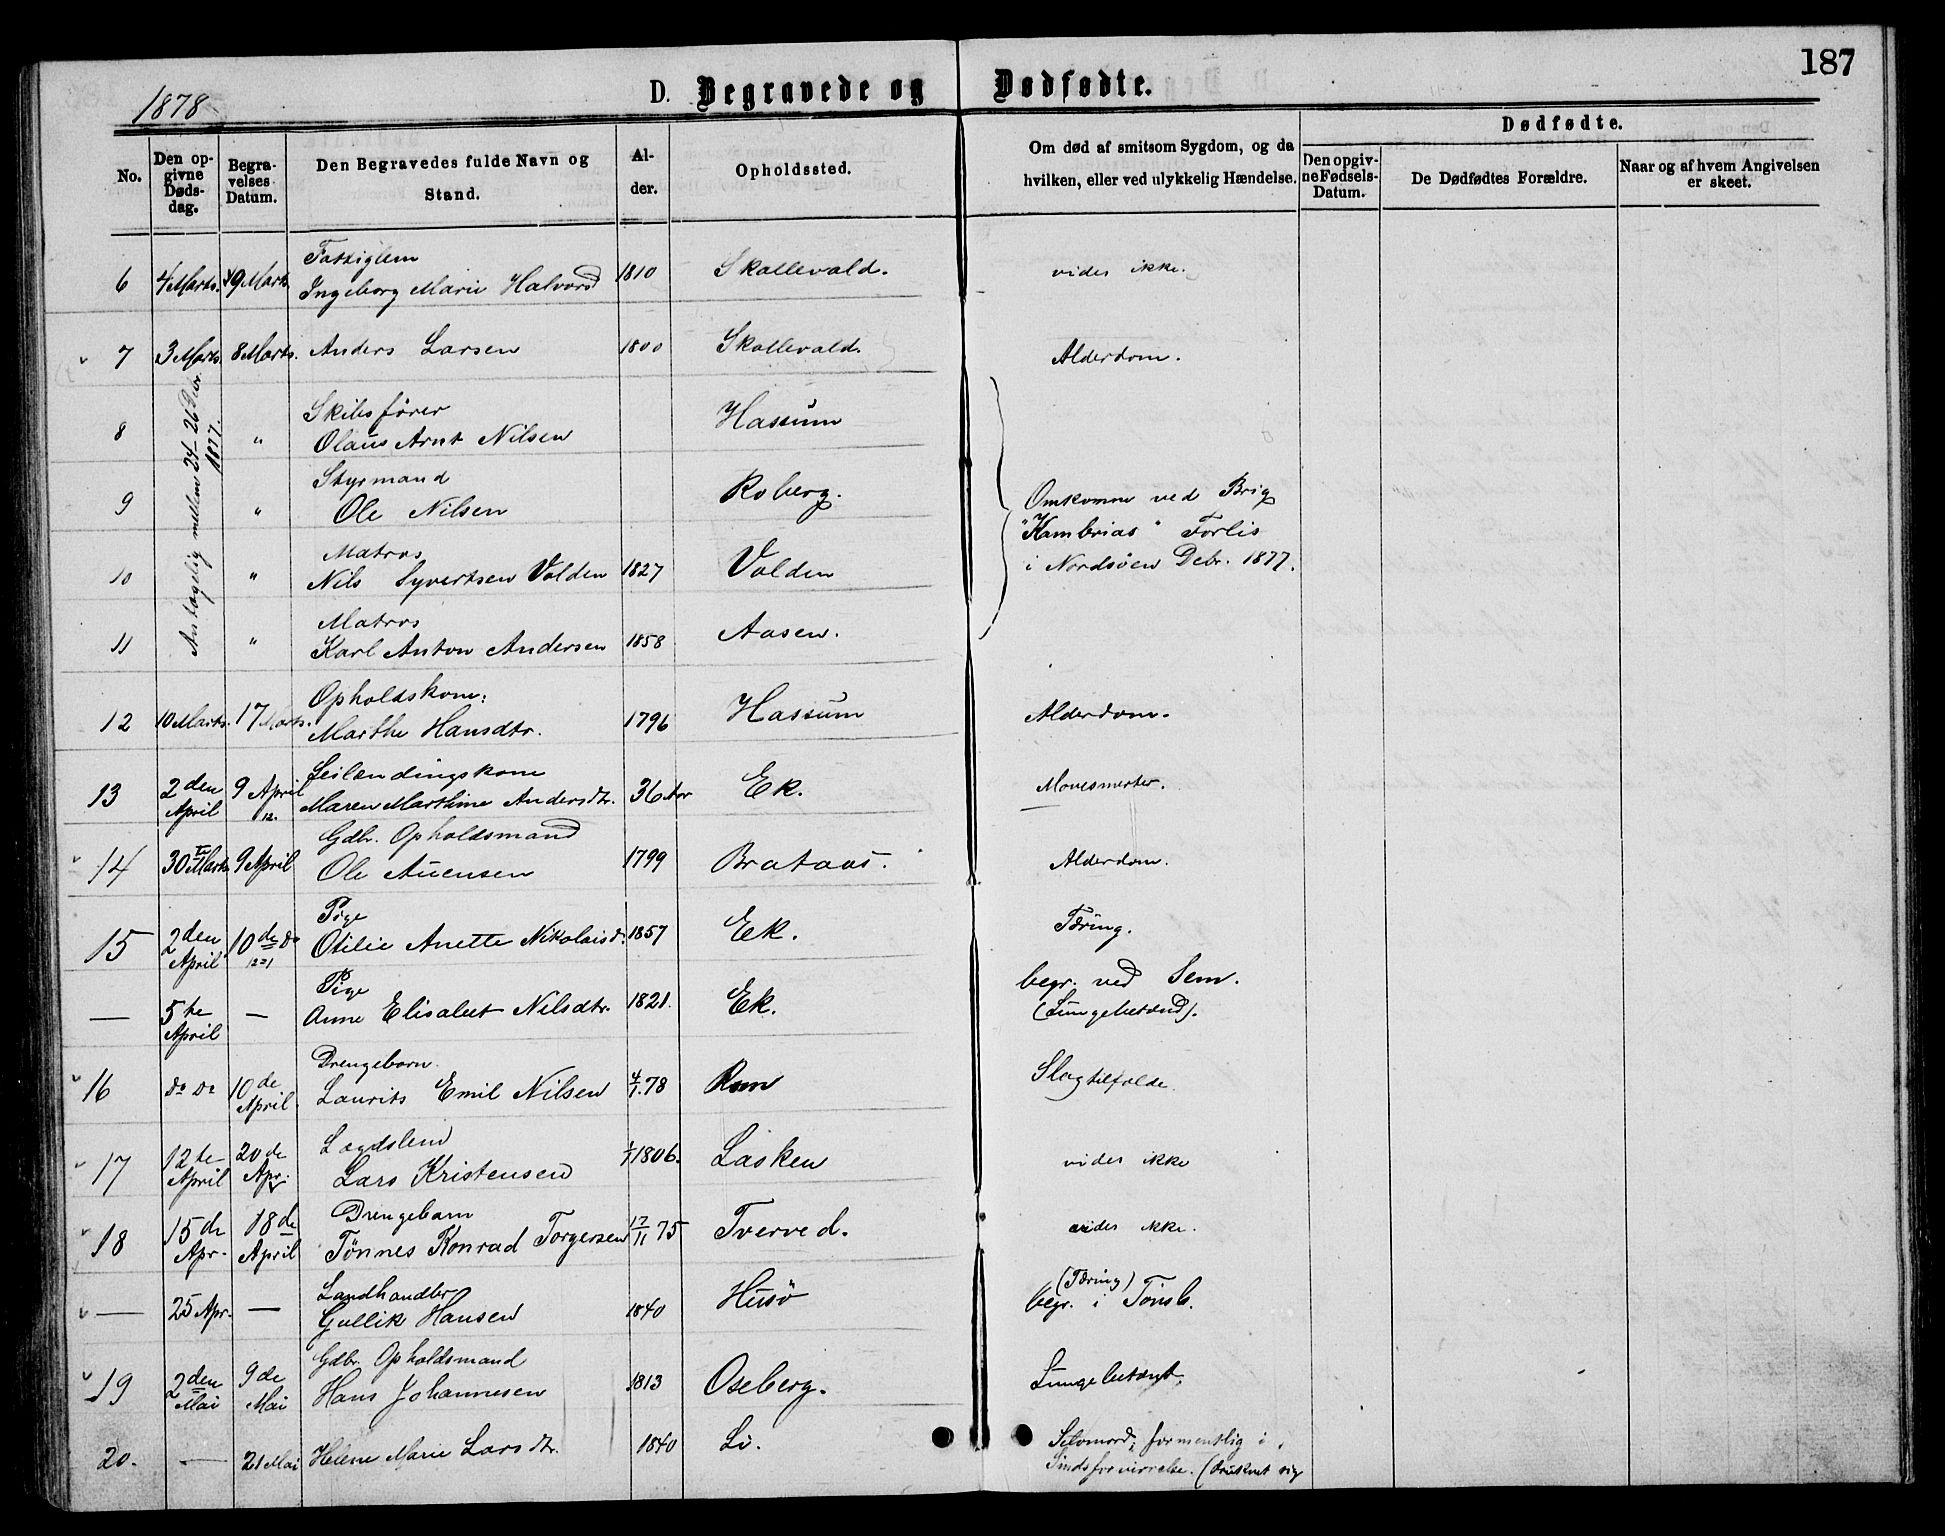 187
1878
D. Begravede og Dødfødte.
No.
Den opgivne Dødsdag.
Begravelses Datum.
Den Begravedes fulde Navn og Stand.
Alder.
Opholdssted.
Om død af smitsom Sygdom, og da hvilken, eller ved ulykkelig Hændelse.
Dødfødte.
Den opgivne Fødsels-Datum.
De Dødfødtes Forældre.
Naar og af hvem Angivelsen er skeet.
Fattiglem
6 4 Marts. 9 Marts. Ingeborg Marie Halvorsd 1810 Skallevald. vides ikke.
7 3 Marts 8 Marts. Anders Larsen 1800 Skallevald. Alderdom.
Antagelig mellem 24 - 26 Debr. 1877.
Skibsfører
8 " Olaus Arnt Nilsen Hassum
Styrmand
9 " Ole Nilsen Roberg.
Omkomne ved Brig
"Kambrias" Forlis
i Nordsøen Debr. 1877.
Matros
10 " Nils Syvertsen Volden 1827 Volden
Matros
11 " Karl Anton Andersen 1858 Aasen.
Opholdskone:
12 10 Marts. 17 Marts. Marthe Hansdtr. 1796 Hassum Alderdom.
Leilændingskone
13 2den April 9 April 12. Maren Marthine Andersdtr. 36 Aar Ek. Mavesmerter.
Gdbr. Opholdsmand
14 30te Marts 9 April Ole Auensen 1799 Brataas. Alderdom.
Pige
15 2den April 10de do Otilie Anette Nikolaisd. 1857 Ek. Tæring.
Pige
— 5te April — Anne Elisabet Nilsdtr. 1821. Ek. begr. ved Sem.
(Lungebetænd).
Drengebarn.
16 do do 10de April. Laurits Emil Nilsen 4/1.78 Ram Slagtilfælde.
Lægdslem
17 12te April 20de Apr. Lars Kristensen 1/1 1806. Lasken vides ikke
Drengebarn
18 15de Apr. 18de April Tønnes Konrad Torgersen 17/11 75 Tverved. vides ikke.
Landhandler
— 25 Apr. — Gullik Hansen 1840 Husö (Tæring)
begr. i Tönsb.
Gdbr. Opholdsmand
19 2den Mai 9de Mai Hans Johannesen 1813 Oseberg. Lungebetændt.
20. — 21 Mai Helene Marie Larsdtr. 1840 Li. Selvmord, formentlig i
Sindsforvirrelse. (druknet sig